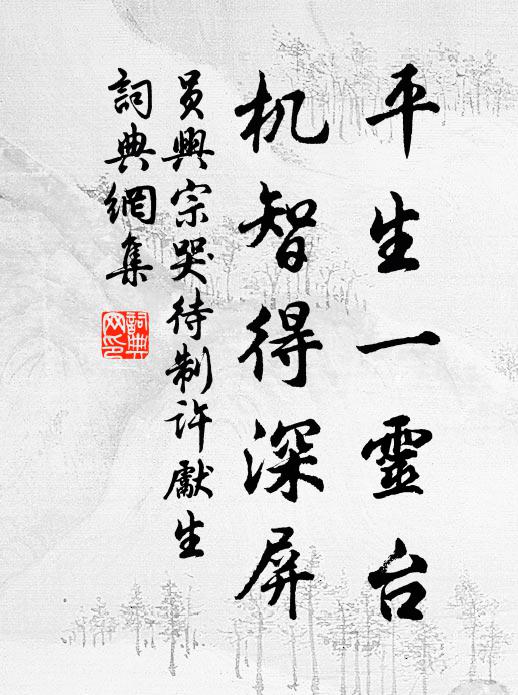 平生一靈台
机智得深屏
員興宗哭待制許獻生
詞典網集
詞典
网印